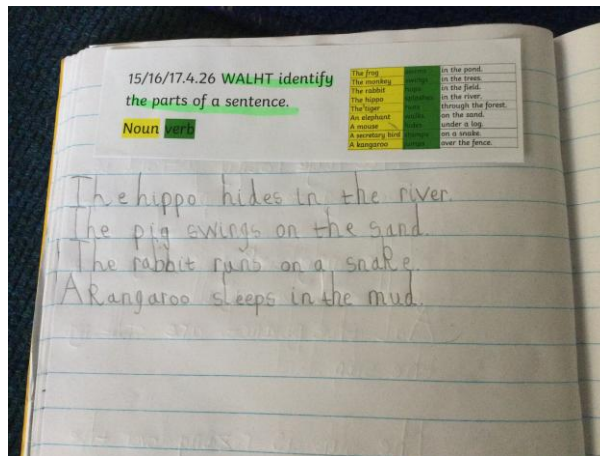 15/16/17.4.26 WALHT identify
the parts of a sentence.
Noun verb
The frog swims in the pond.
The monkey swings in the trees.
The rabbit hops in the field.
The hippo splashes in the river.
The tiger runs through the forest.
An elephant walks on the sand.
A mouse hides under a log.
A secretary bird stomps on a snake.
A kangaroo jumps over the fence.
The hippo hides in the river.
The pig swings on the sand.
The rabbit runs on a snake.
A Kangaroo sleeps in the mud.